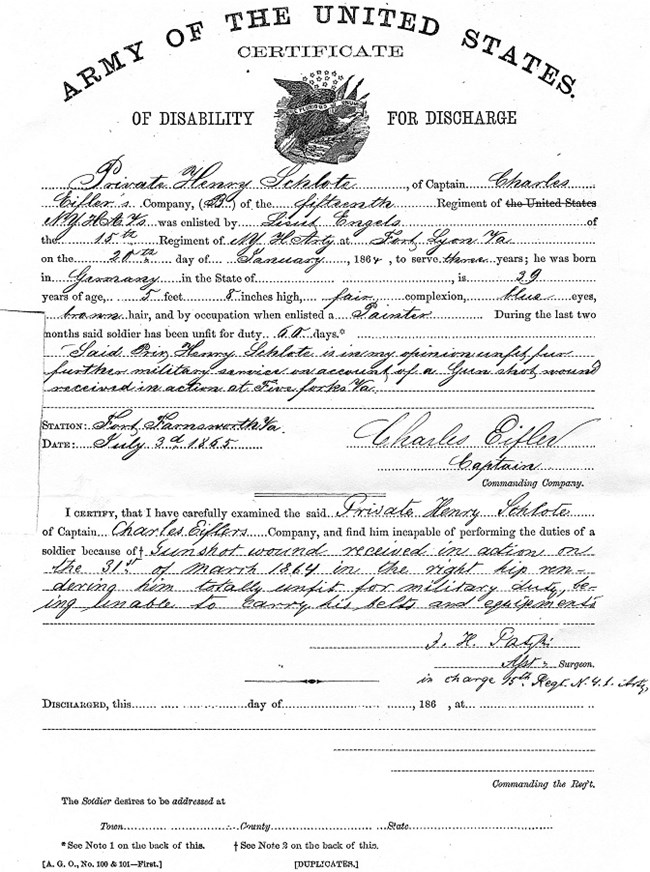 ARMY OF THE UNITED STATES.
CERTIFICATE
E PLURIBUS UNUM
OF DISABILITY FOR DISCHARGE
Private Henry Schlote, of Captain Charles
Eifler s Company, (B) of the fifteenth Regiment of the United States
N.Y.H.A.Vs was enlisted by Lieut Engels of
the 15th Regiment of NY H Arty at Fort Lyon Va
on the 20th day of January, 1864, to serve three years; he was born
in Germany in the State of , is 39
years of age, 5 feet 8 inches high, fair complexion, blue eyes,
brown hair, and by occupation when enlisted a Painter During the last two
months said soldier has been unfit for duty 60 days.*
Said Priv. Henry Schlote is in my opinion unfit fur
further military service on account of a Gun shot wound
received in action at Five forks Va.
STATION: Fort Farnsworth Va.
DATE: July 3d 1865
Charles Eifler
Captain
Commanding Company.
I CERTIFY, that I have carefully examined the said Private Henry Schlote
of Captain Charles Eiflers Company, and find him incapable of performing the duties of a
soldier because of† Gunshot wound received in action on
the 31st of March 1864 in the right hip ren-
dering him totally unfit for military duty, be-
ing unable to carry his belts and equipments
J. H.
Asst. Surgeon.
in charge 15th Regt. N.Y. Arty,
DISCHARGED, this day of , 186 , at
Commanding the Reg't.
The Soldier desires to be addressed at
Town County State
*See Note 1 on the back of this. †See Note 2 on the back of this.
[A. G. O., No. 100 & 101—First.] [DUPLICATES.]